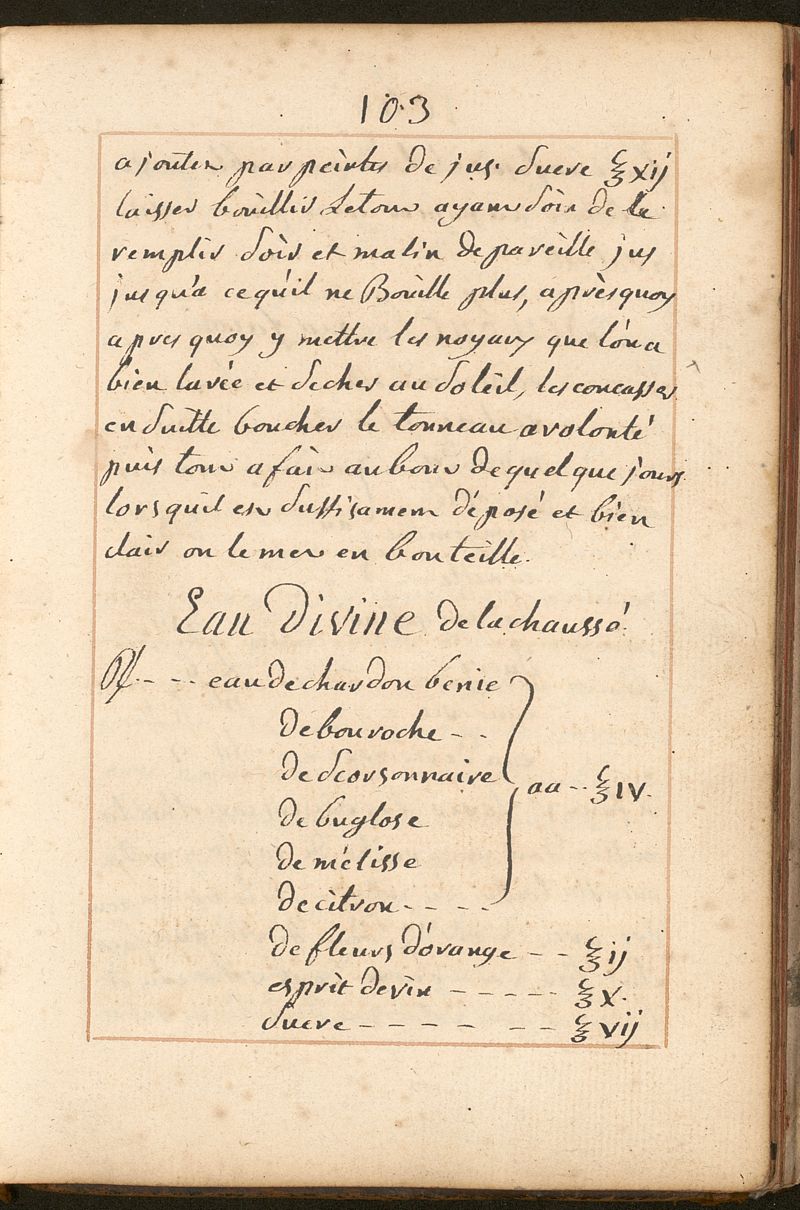 103
ajoutez par peintes de jus sucre ℥ xij
laisser boüillir Letout ayant soin de le
remplir soir et matin de pareille jus
jusqu'a ce qu'il ne Boüille plus, aprèsquoy
apres quoy y mettre les noyaux que lòn a
bien lavée et secher au soleil, les concasser
en suitte boucher le tonneau a volonté
puis tout a fait au bout de quel que jours
lors qu'il est suffisament déposé et bien
clair on le met en bouteille.
Eau Divine de la chaussé
♃ - - - eau de chardon benie
de bouroche - -
de scorsonnaire
aa - - ℥ IV.
de buglose
de mélisse
de citron - - - -
de fleurs d'orange - - ℥ ij
esprit de vin - - - - - ℥ X.
sucre - - - - - - ℥ vij